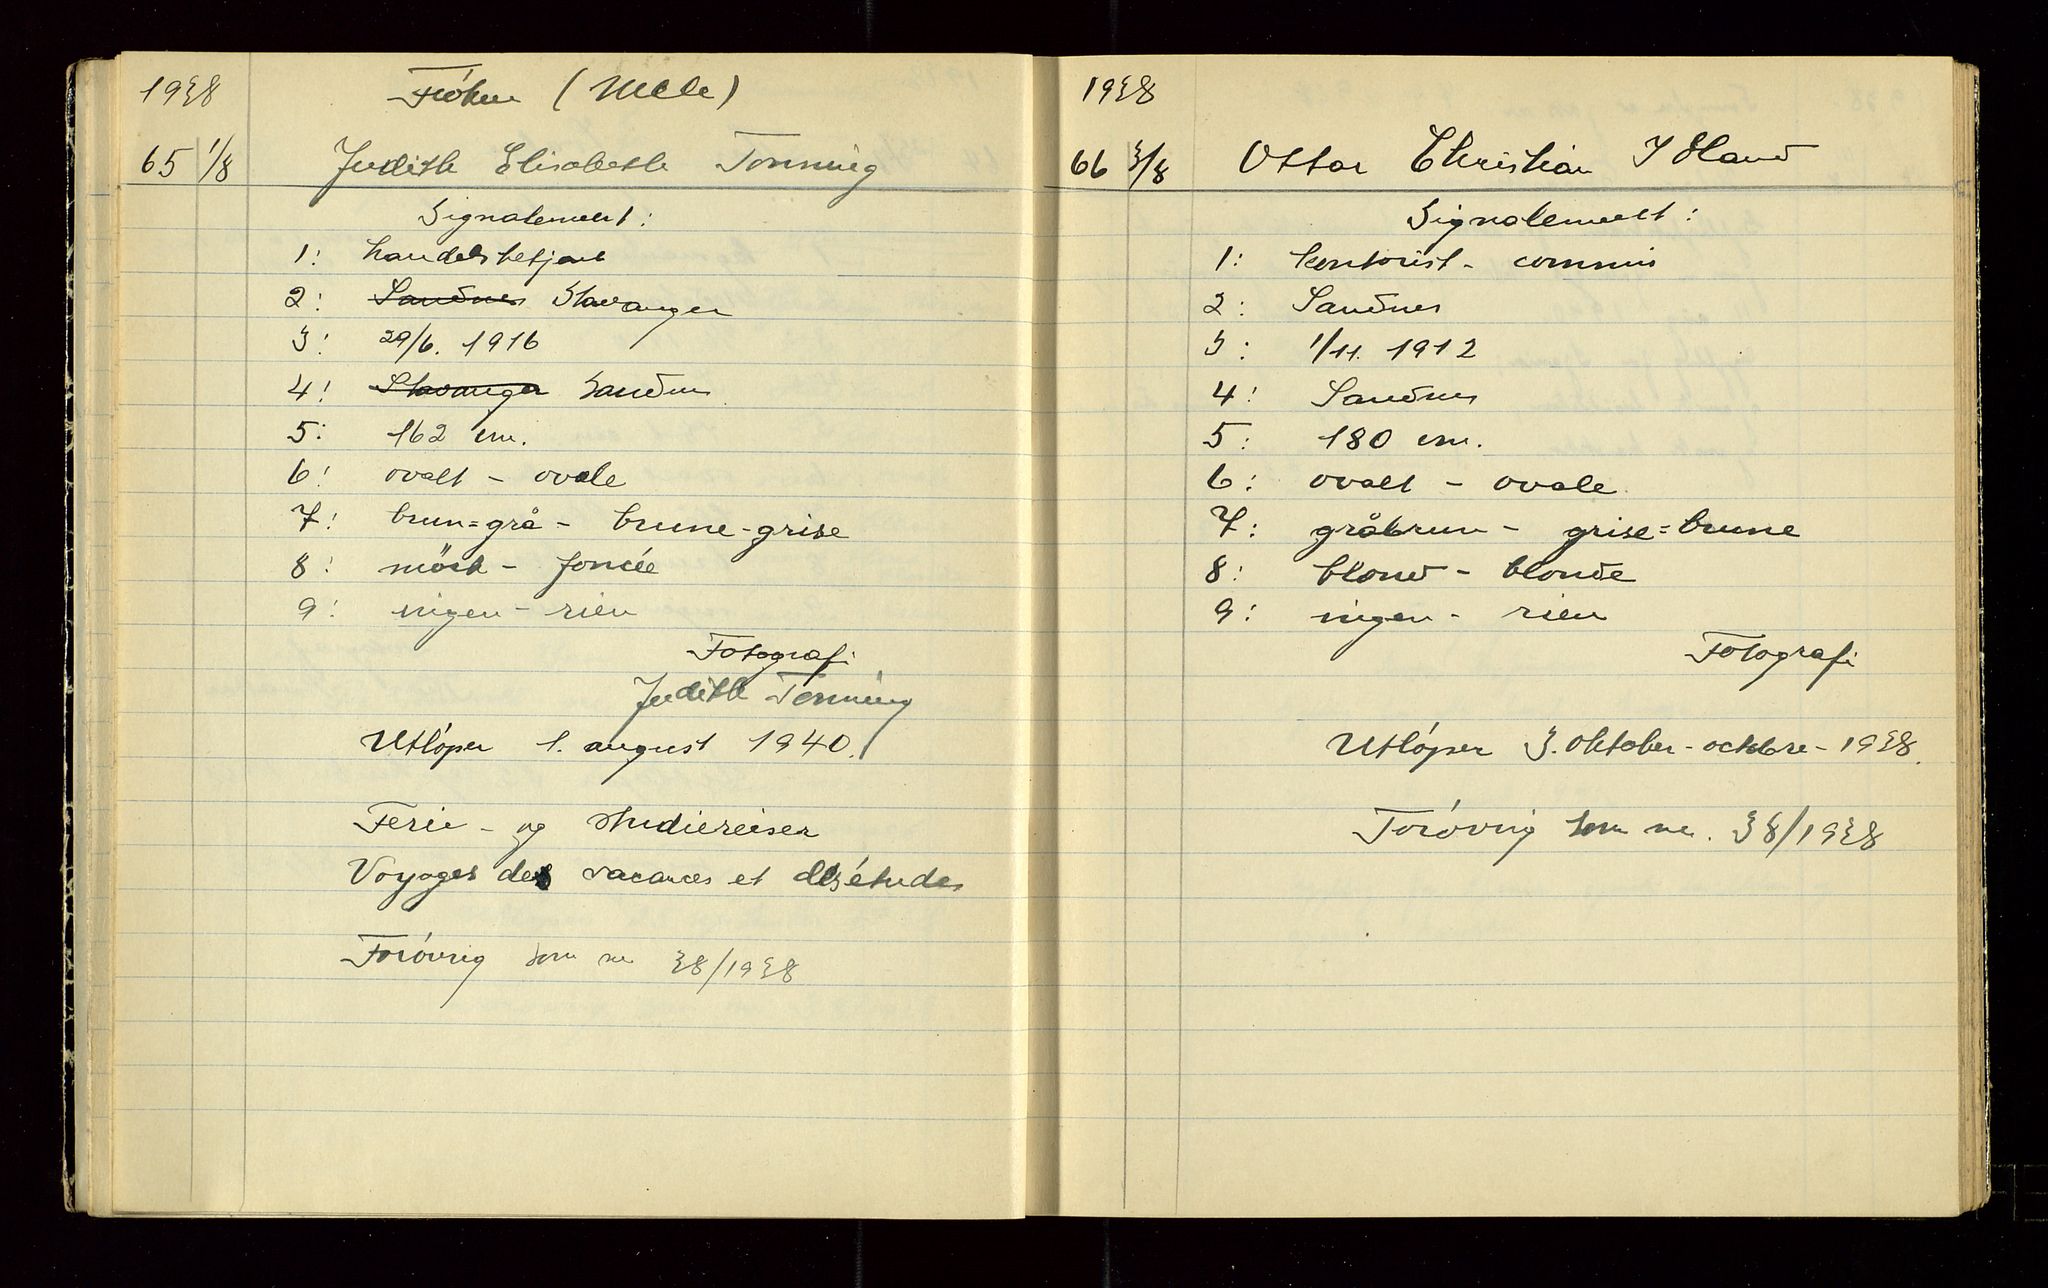 1938 Frøken (Melle)
65 1/8 Judith Elisabeth Tonning
Signalement:
1: handelsbetjent
2: Sandnes Stavanger
3: 29/6. 1916
4: Stavanger Sandnes
5: 162 cm.
6: ovalt - ovale
7: brun=grå - brune-grise
8: mörk - foncée
9: ingen - rien
Fotografi
Judith Tonning
Utløper 1. august 1940.
Ferie - og studiereiser
Voyages des vacances et des études
Forøvrig som nr 38/1938
1938
66 3/8 Ottar Christian Idland
Signalement:
1: kontorist - commis
2: Sandnes
3: 1/11. 1912
4: Sandnes
5: 180 cm.
6: ovalt - ovale
7: gråbrun - grise=brune
8: blond - blonde
9: ingen - rien
Fotografi
Utløper 3. oktober - octobre - 1938.
Forøvrig som nr. 38/1938